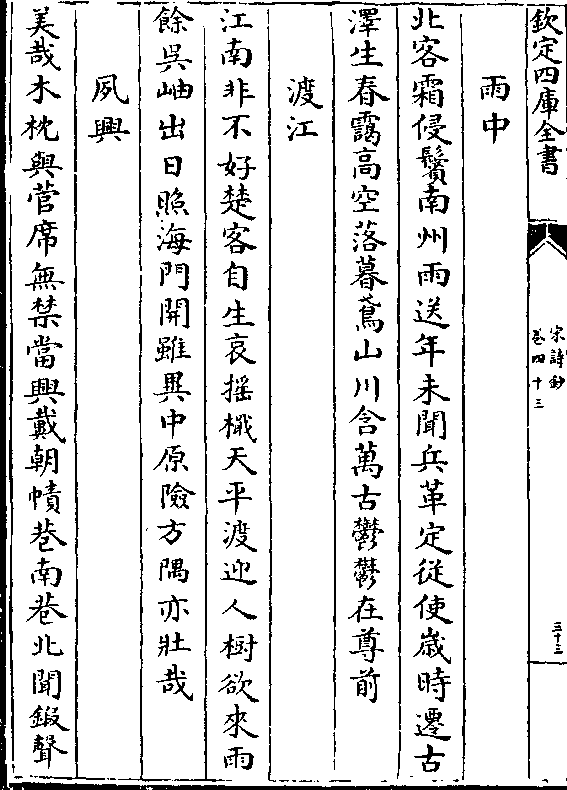 欽定四庫全書
宋詩鈔
卷四十三
三十三
雨中
北客霜侵鬢南州雨送年未聞兵革定從使歲時遷古
澤生春靄高空落暮鳶山川含萬古鬱鬱在尊前
渡江
江南非不好楚客自生哀搖檝天平渡迎人樹欲來雨
餘吳岫出日照海門開雖異中原險方隅亦壯哉
夙興
美哉木枕與菅席無禁當興戴朝幘巷南巷北聞鍛聲